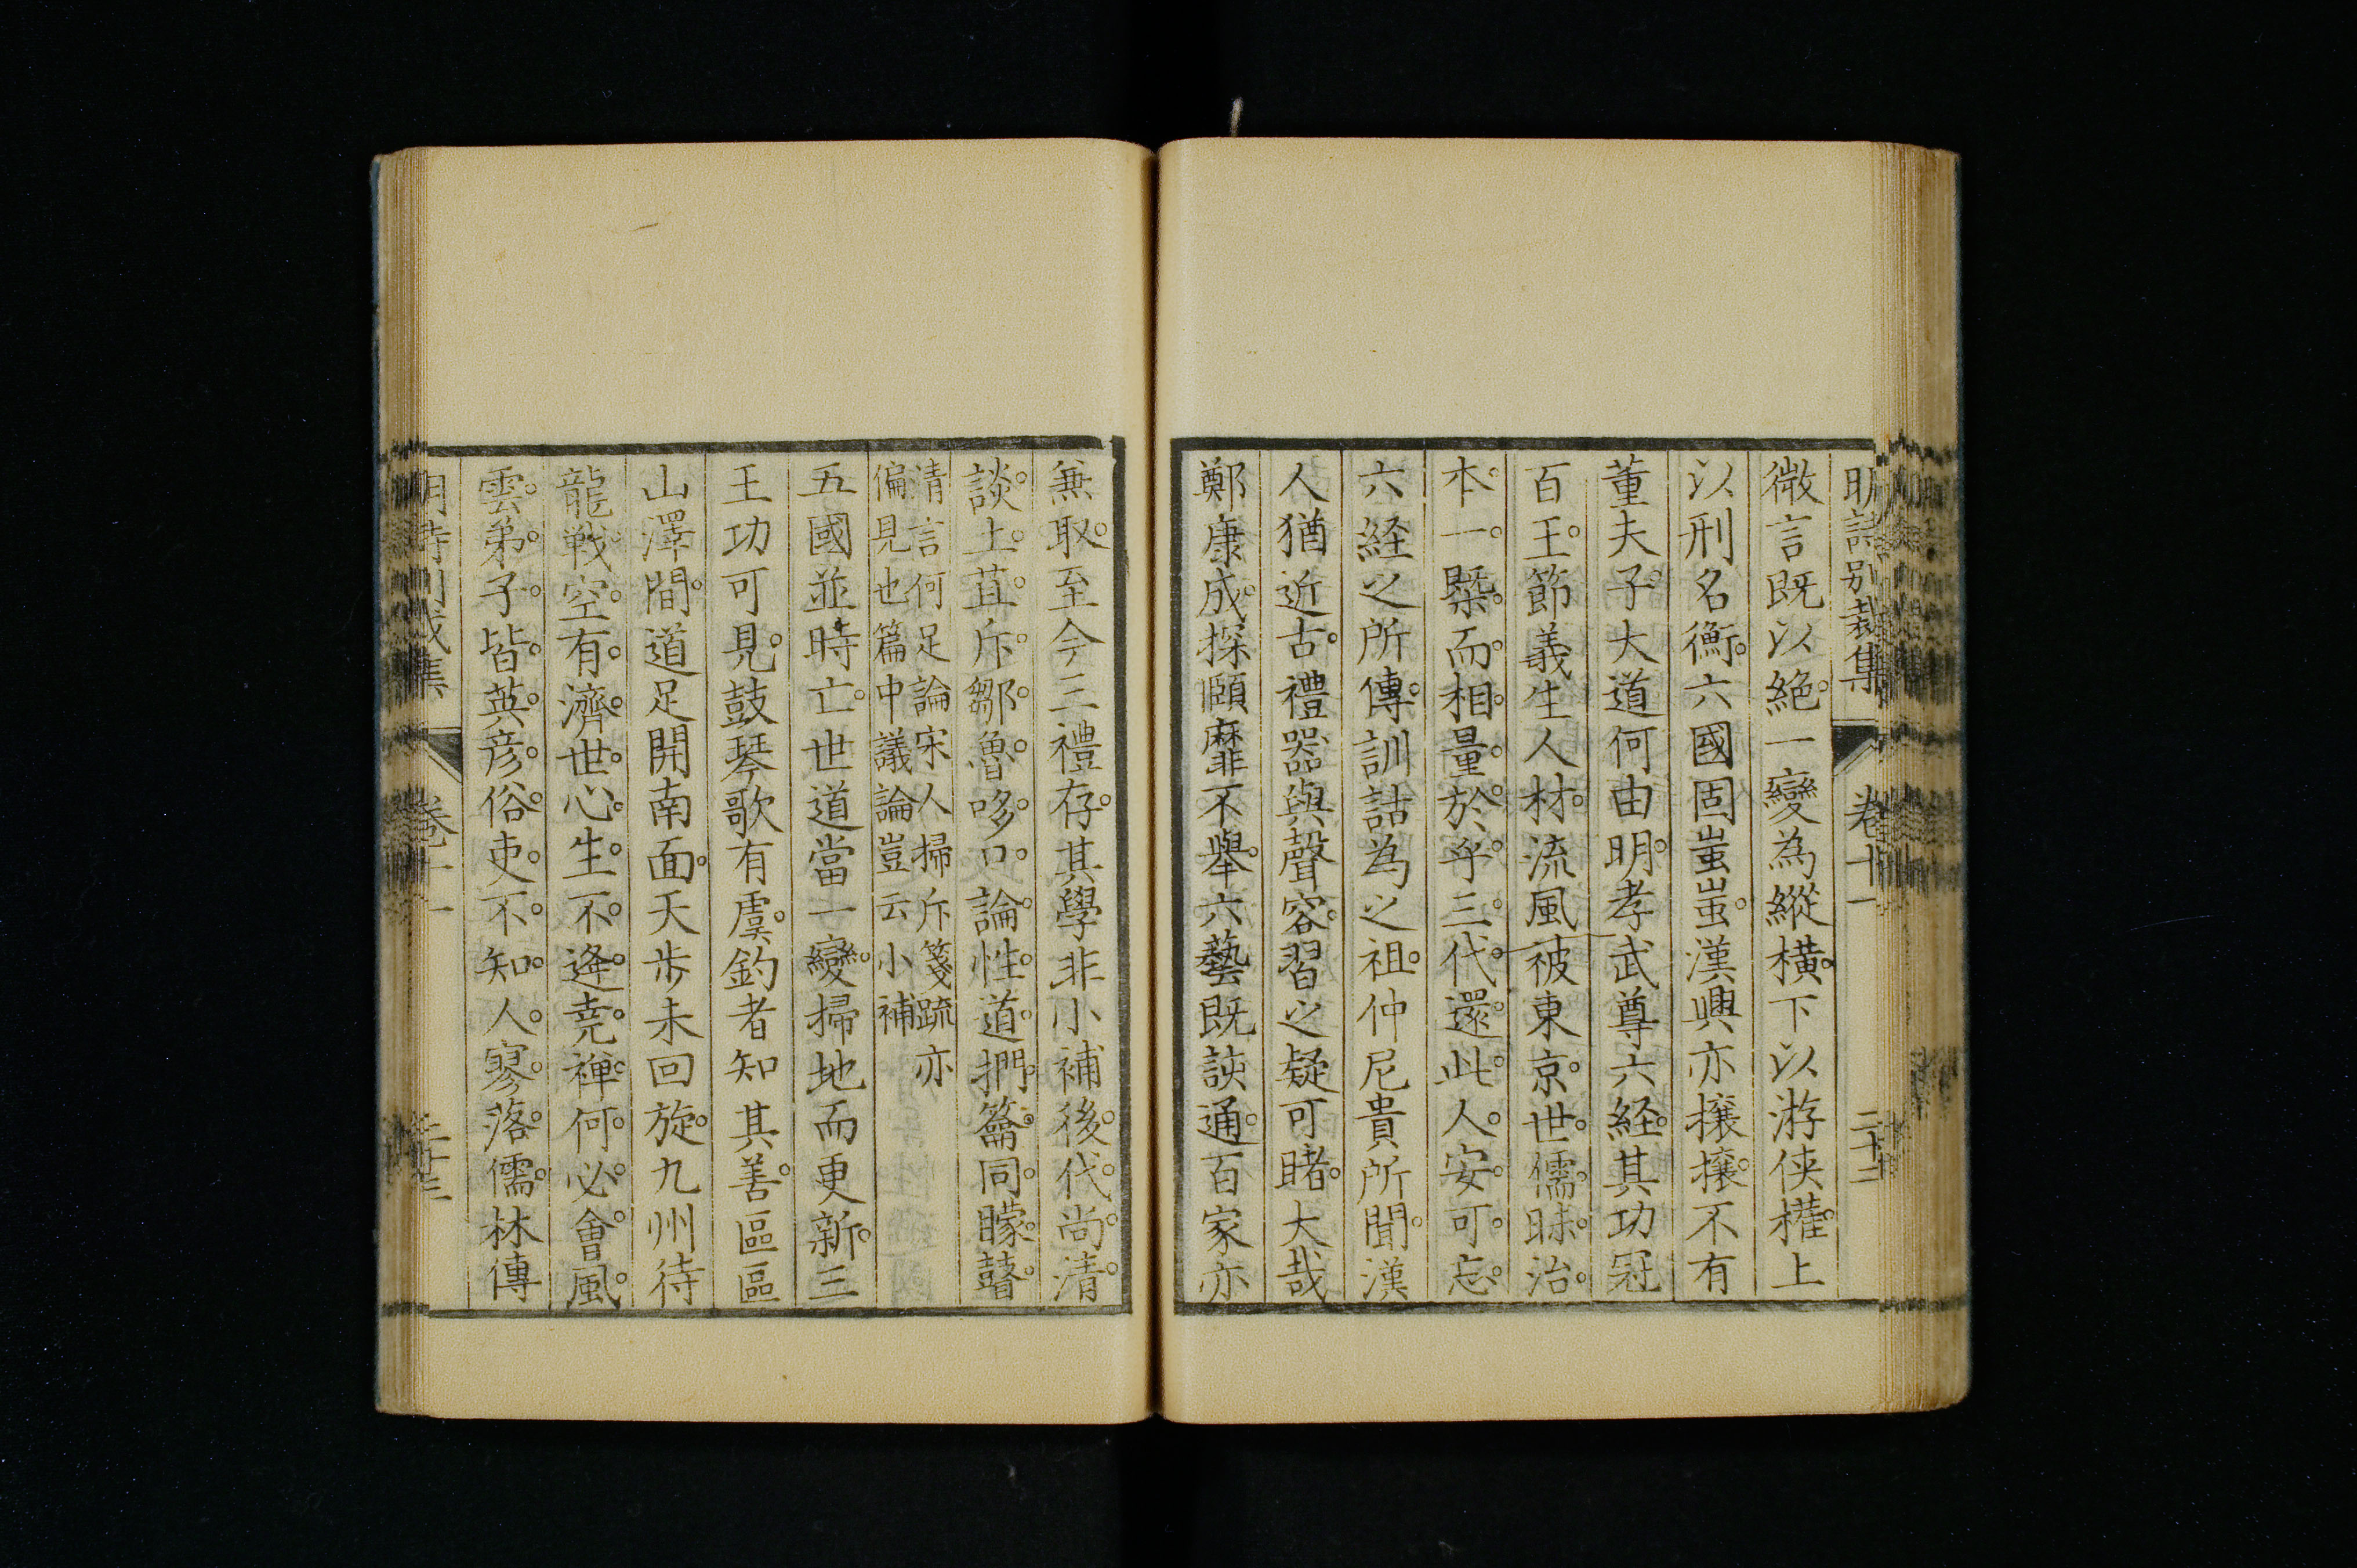 明詩別裁集 卷十一 二十二
微言既以絶一變為縱橫。下以游俠權。上
以刑名衡。六國固蚩蚩。漢興亦攘攘。不有
董夫子。大道何由明。孝武尊六経。其功冠
百王。節義生人材。流風被東京。世儒昧治。
本。一。槩。而。相。量。於。乎。三。代。還。此。人。安。可。忘。
六経之所傳。訓詁為之祖。仲尼貴所聞。漢
人猶近古。禮器與聲容。習之疑可睹。大哉
鄭康成。探頤靡不舉。六藝既該通。百家亦
兼取。至今三禮存。其學非小補。後。代。尚。清。
談。土。苴。斥。鄒。魯。哆。口。論。性。道。捫。籥。同。矇。瞽。
清言何足論宋人掃斥箋疏亦
偏見也篇中議論豈云小補
五國並時亡。世道當一變。掃地而更新。三
王功可見。鼓琴歌有虞。釣者知其善。區區
山澤間。道足開南面。天步未回旋。九州待
龍戦空。有。濟。世。心。生。不。逢。尭。禅。何。必。會。風。
雲。弟。子。皆。英。彦。俗。吏。不。知。人。寥。落。儒。林傳
明詩別裁集 卷十一 二十三